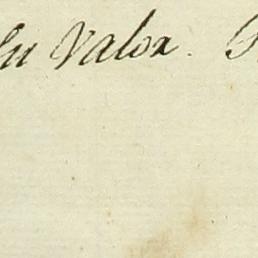 Su Valor.